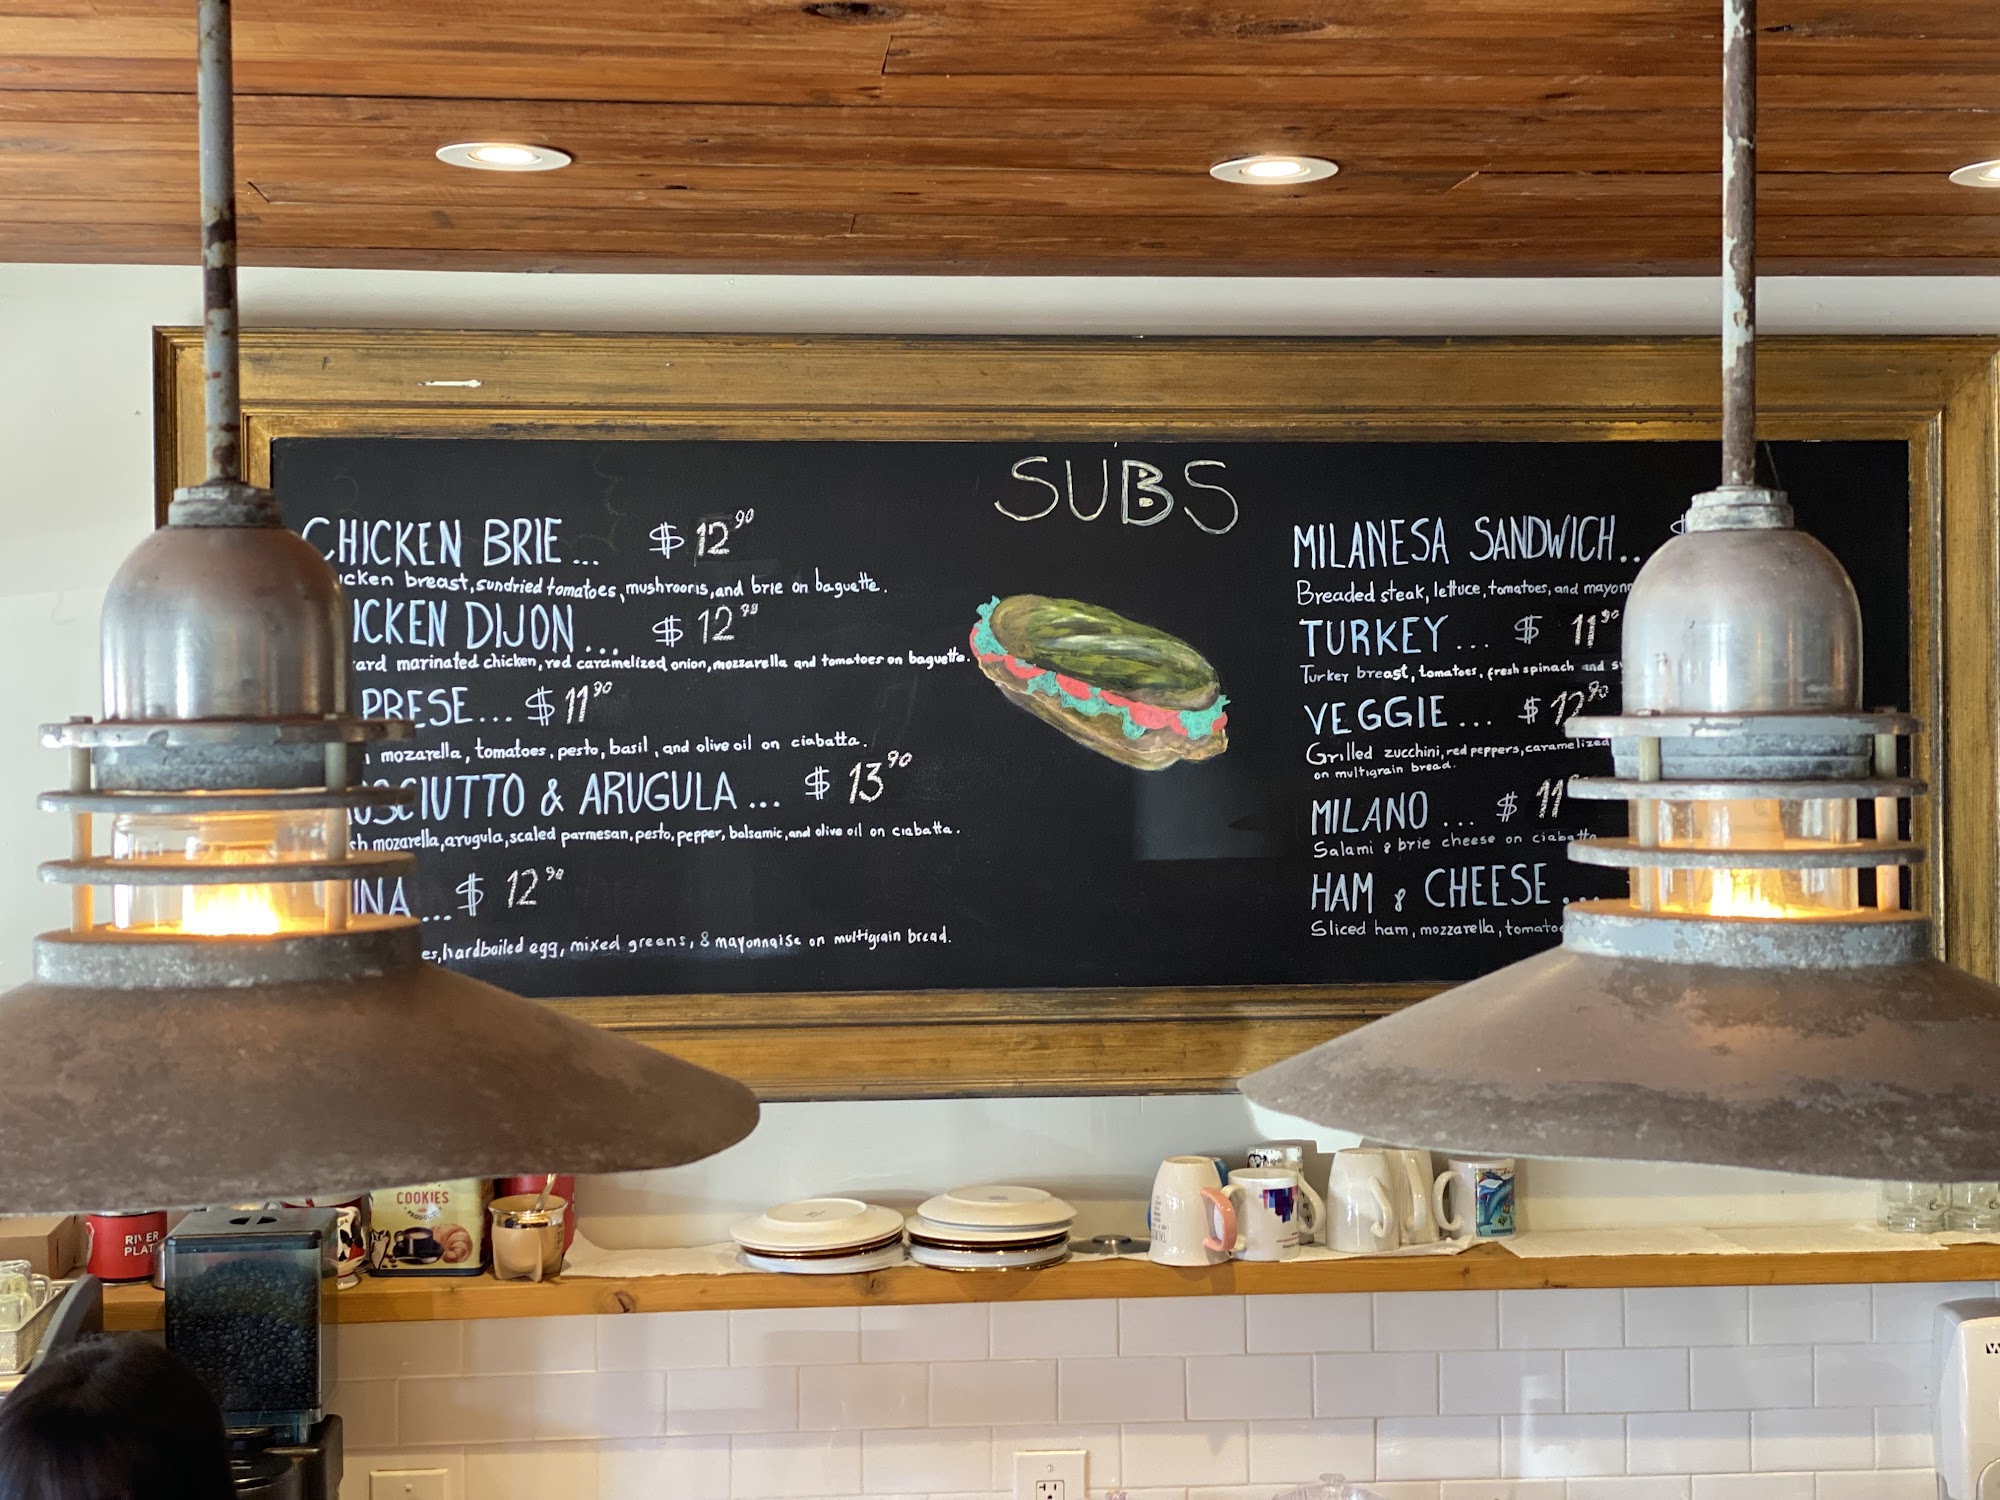 SUBS
CHICKEN BRIE... $ 12 90
breast, sundried tomatoes, mushrooms, and brie on baguette.
DIJON... $ 12
marinated chicken, red caramelized onion, mozzarella and tomatoes on baguette.
PRESE... $ 11 90
mozarella, tomatoes, pesto, basil, and olive oil on ciabatta.
& ARUGULA... $ 13 90
mozarella, arugula, scaled parmesan, pesto, pepper, balsamic, and olive oil on ciabatta.
... $ 12 90
hardboiled egg, mixed greens, & mayonnaise on multigrain bread.
MILANESA SANDWICH..
Breaded steak, lettuce, tomatoes, and
TURKEY... $ 11 90
Turkey breast, tomatoes, fresh spinach and
VEGGIE... $ 12 90
Grilled zucchini, red peppers, caramelized
on multigrain bread.
MILANO... $ 11
Salami & brie cheese on ciabatta
HAM & CHEESE...
Sliced ham, mozzarella,
COOKIES
RIVER
PLAT